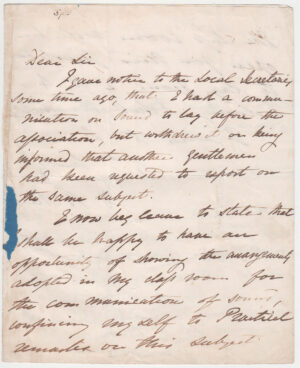 Dear Sir
I gave notice to the Local Secretary
some time ago, that I had a commu-
nication on Sound to lay before the
association, but withdrew it on being
informed that another gentleman
had been requested to report on
the same subject.
I now beg leave to state that
I shall be happy to have an
opportunity of showing the arrangements
adopted in my class room for
the communication of sound,
confining myself to Practical
remarks on this subject